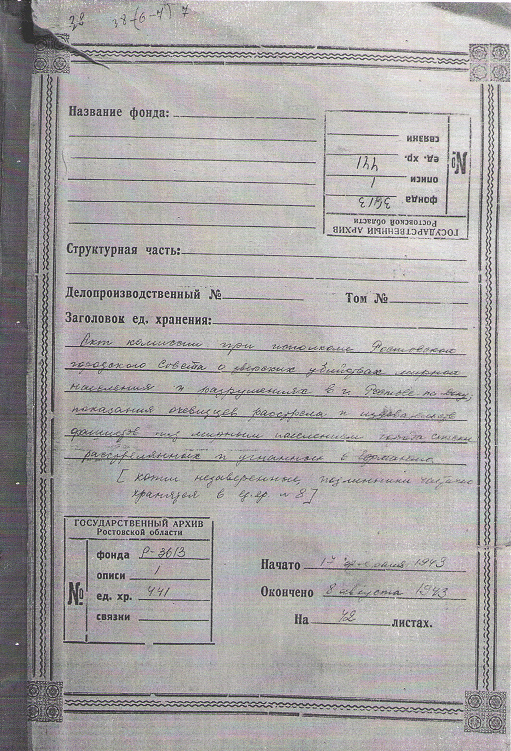 32 38-(6-4) 7
Название фонда:
ГОСУДАРСТВЕННЫЙ АРХИВ
Ростовской области
№
фонда 3613
описи 1
ед. хр. 441
связки
Структурная часть:
Делопроизводственный № Том №
Заголовок ед. хранения:
Акт комиссии при исполкоме Ростовского
городского Совета о зверских убийствах мирного
населения и разрушениях в г. Ростове
показания очевидцев расстрела и издевательств
фашистов над мирным населением города списки
расстрелянных и угнанных в Германию
[копии незаверенные, подлинники частично
хранятся в ед.хр. № 8]
ГОСУДАРСТВЕННЫЙ АРХИВ
Ростовской области
№
фонда Р-3613
описи 1
ед. хр. 441
связки
Начато 17 1943
Окончено 8 августа 1943
На 42 листах.